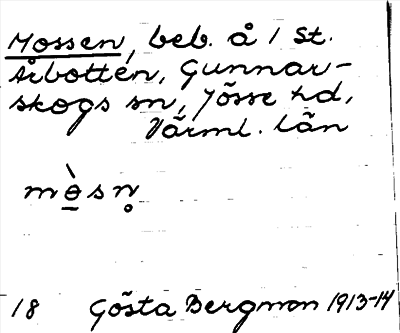 Mossen, beb. å 1 St.
Årbotten, Gunnar-
skogs sn, Jösse hd,
Värml. län
mɵ̀sn̥
18 Gösta Bergman 1913-14